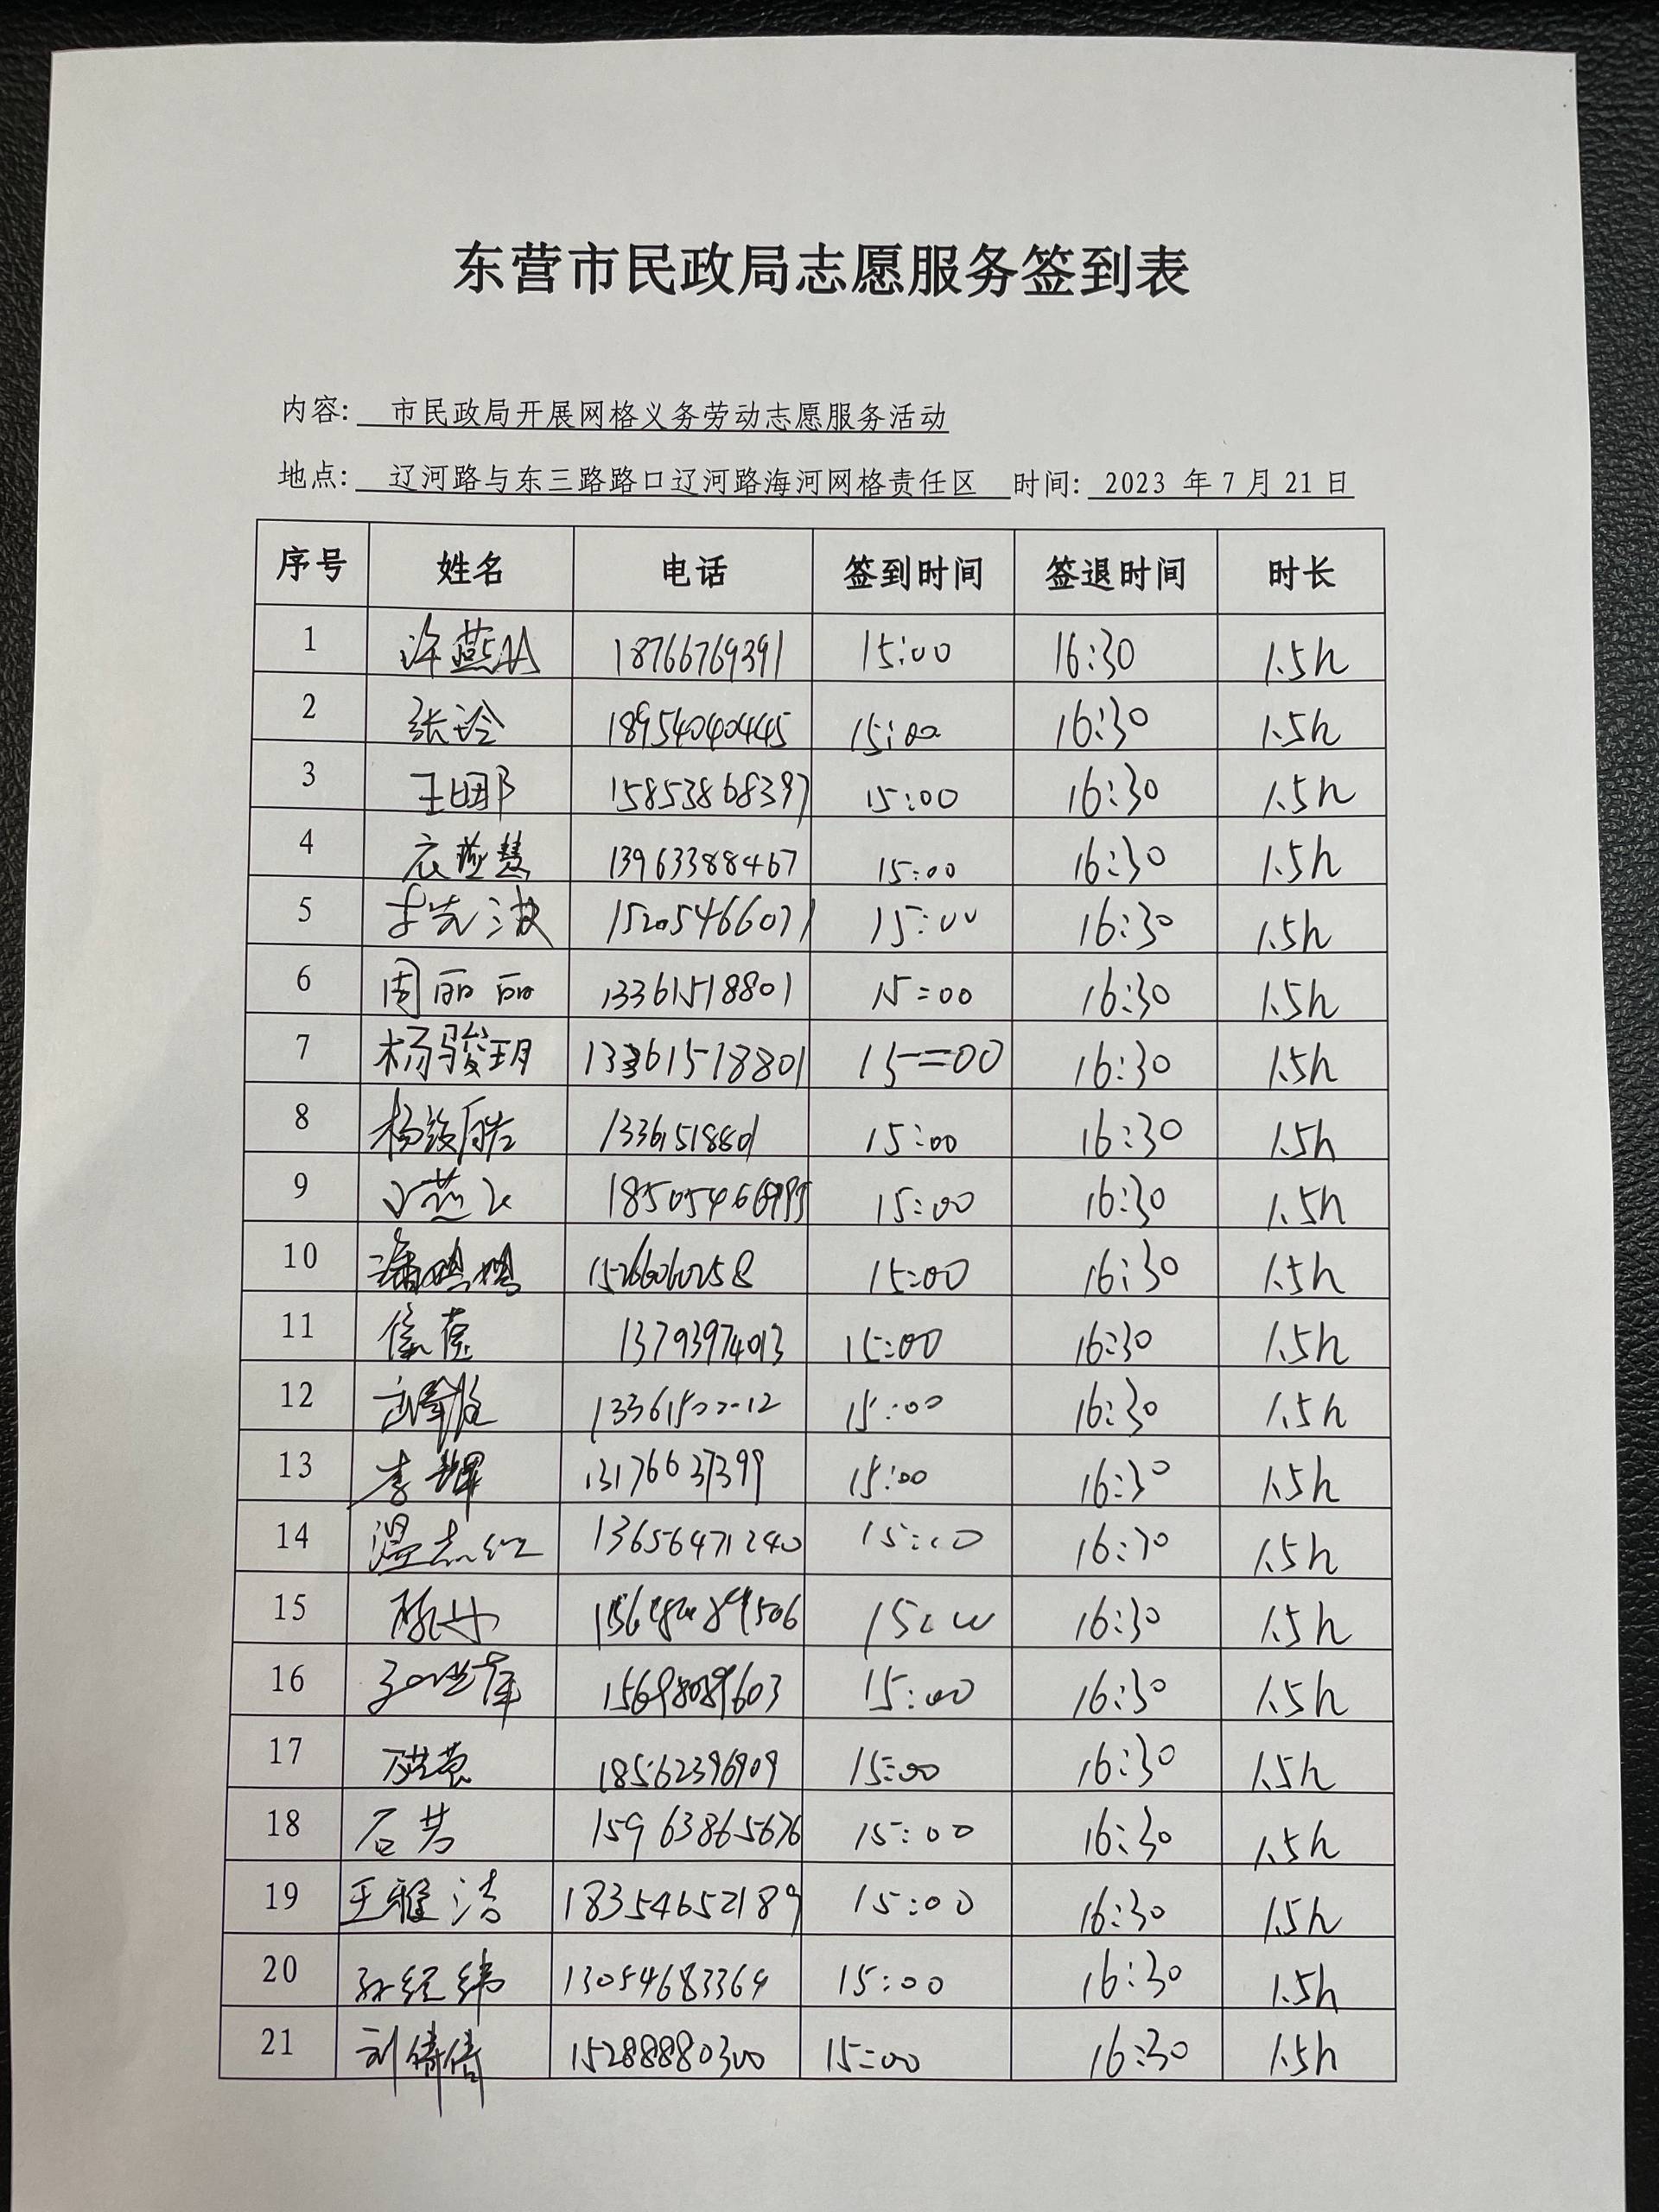 东营市民政局志愿服务签到表
内容: 市民政局开展网格义务劳动志愿服务活动
地点: 辽河路与东三路路口辽河路海河网格责任区 时间: 2023 年 7 月 21 日
序号 姓名 电话 签到时间 签退时间 时长
1 许燕 18766769391 15:00 16:30 1.5h
2 张玲 18954040445 15:00 16:30 1.5h
3 王 15853868397 15:00 16:30 1.5h
4 衣燕慧 13963388467 15:00 16:30 1.5h
5 李先波 15205466071 15:00 16:30 1.5h
6 周丽丽 13361518801 15:00 16:30 1.5h
7 杨骏玥 13361518801 15:00 16:30 1.5h
8 杨 13361518801 15:00 16:30 1.5h
9 燕飞 15:00 16:30 1.5h
10 潘 15266060258 15:00 16:30 1.5h
11 13793974013 15:00 16:30 1.5h
12 15:00 16:30 1.5h
13 李辉 13176637399 15:00 16:30 1.5h
14 温志红 13656471240 15:00 16:30 1.5h
15 15:00 16:30 1.5h
16 15698089603 15:00 16:30 1.5h
17 18562396909 15:00 16:30 1.5h
18 石芳 15963865676 15:00 16:30 1.5h
19 王雅洁 18354652189 15:00 16:30 1.5h
20 孙经纬 13054683364 15:00 16:30 1.5h
21 刘倩倩 15288880300 15:00 16:30 1.5h